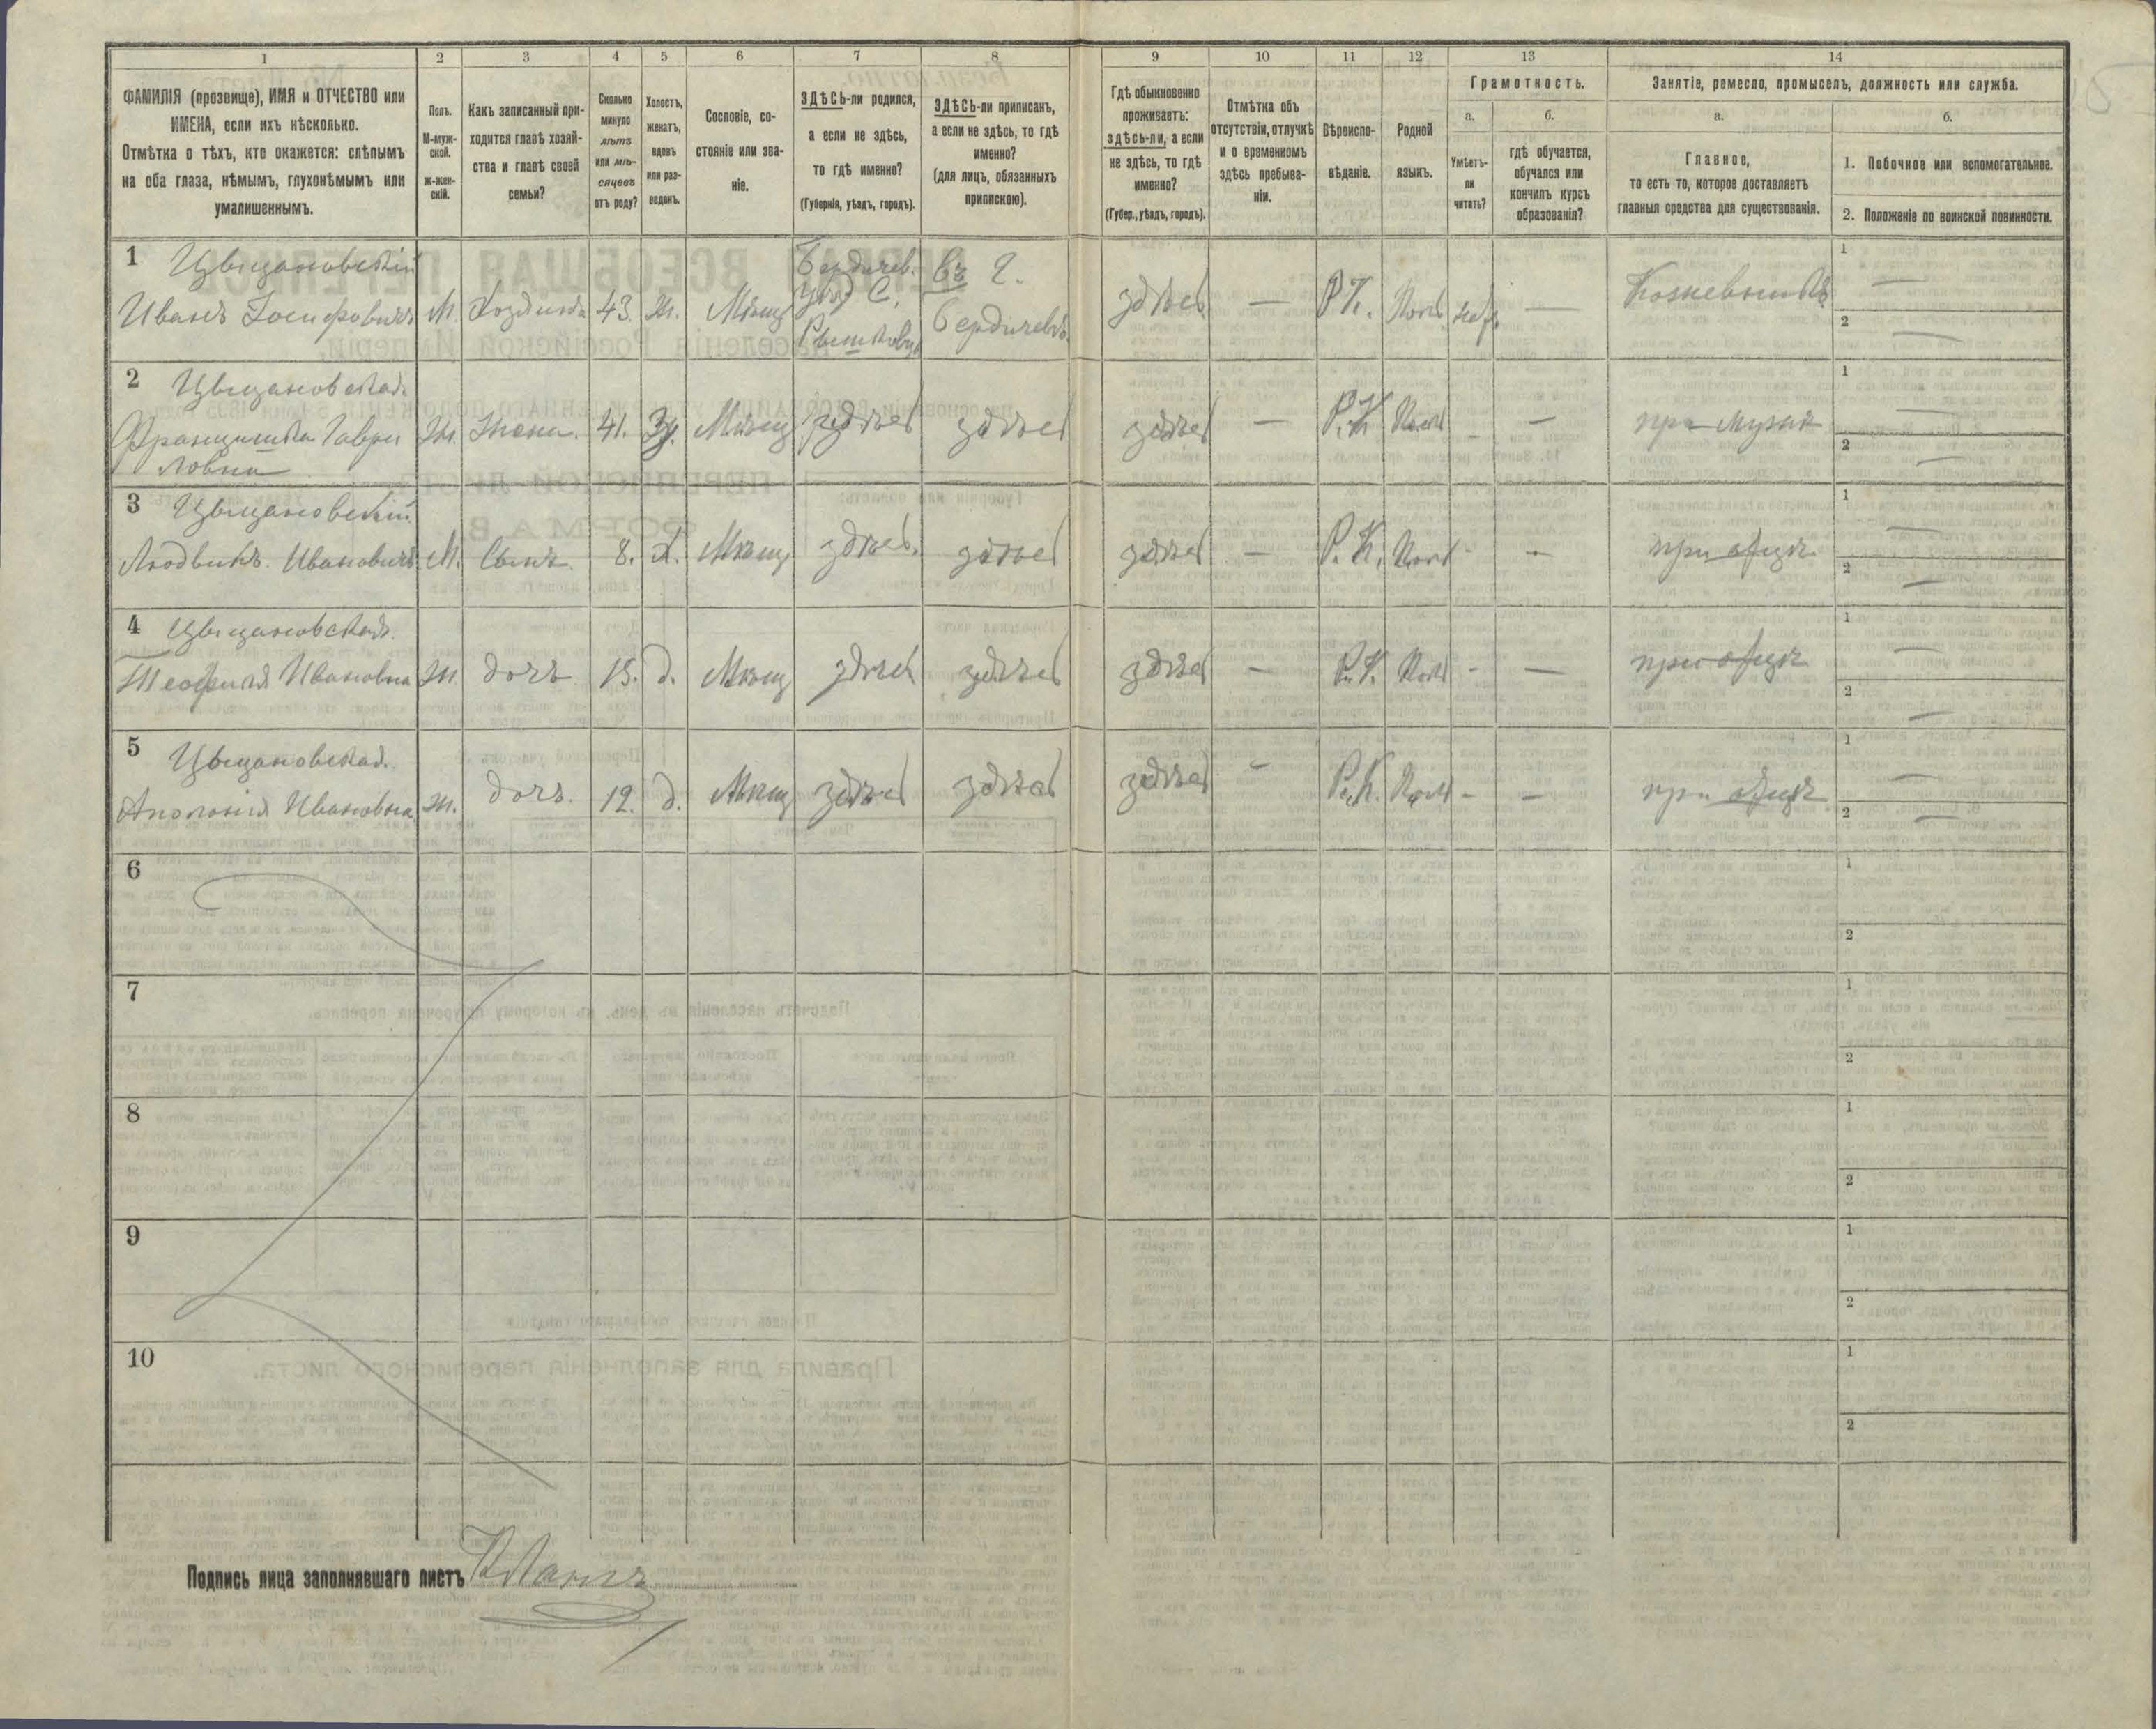 1 2 3 4 5 6 7 8 9 10 11 12 13 14
ФАМИЛІЯ (прозвище), ИМЯ и ОТЧЕСТВО или
ИМЕНА, если ихъ нѣсколько.
Отмѣтка о тѣхъ, кто окажется: слѣпымъ
на оба глаза, нѣмымъ, глухонѣмымъ или
умалишеннымъ.
Полъ.
М-муж-
ской.
ж-жен-
скій.
Какъ записанный при-
ходится главѣ хозяй-
ства и главѣ своей
семьи?
Сколько
минуло
лѣтъ
или мѣ-
сяцевъ
отъ роду?
Холостъ,
женатъ,
вдовъ
или раз-
веденъ.
Сословіе, со-
стояніе или зва-
ніе.
ЗДѢСЬ-ли родился,
а если не здѣсь,
то гдѣ именно?
(Губернія, уѣздъ, городъ).
ЗДѢСЬ-ли приписанъ,
а если не здѣсь, то гдѣ
именно?
(для лицъ, обязанныхъ
припискою).
Гдѣ обыкновенно
проживаетъ:
здѣсь-ли, а если
не здѣсь, то гдѣ
именно?
(Губер., уѣздъ, городъ).
Отмѣтка объ
отсутствіи, отлучкѣ
и о временномъ
здѣсь пребыва-
ніи.
Вѣроиспо-
вѣданіе.
Родной
языкъ.
Грамотность.
а.
Умѣетъ-
ли
читать?
б.
гдѣ обучается,
обучался или
кончилъ курсъ
образованія?
Занятіе, ремесло, промыселъ, должность или служба.
а.
Главное,
то есть то, которое доставляетъ
главныя средства для существованія.
б.
1. Побочное или вспомогательное.
2. Положеніе по воинской повинности.
1 Цвыцановскій
Иванъ Іосифовичъ М. Хозяинъ 43. Ж. Мѣщ
Бердичев.
уѣзд С.
въ г.
Бердичевъ.
здѣсь — Р.К. —
Кожевникъ
1 —
2 —
2 Цвыцановская.
Францишка Гаври
ловна Ж. Жена. 41. Мѣщ здѣсь здѣсь здѣсь — Р.К. — — при мужѣ
1 —
2 —
3 Цвыцановскій
Людвикъ Ивановичъ М. Сынъ. 8. Х. Мѣщ здѣсь. здѣсь здѣсь — Р.К. - — при отцѣ.
1 —
2 —
4 Цвыцановская.
Теофиля Ивановна Ж. дочь 15. д. Мѣщ здѣсь здѣсь здѣсь — Р.К. - — при отцѣ
1 —
2 —
5 Цвыцановская.
Аполонія Ивановна Ж. дочь. 12. д. Мѣщ здѣсь здѣсь здѣсь - Р.К. - — при отцѣ
1 —
2 —
6
1
2
7
1
2
8
1
2
9
1
2
10
1
2
Подпись лица заполнявшаго листъ